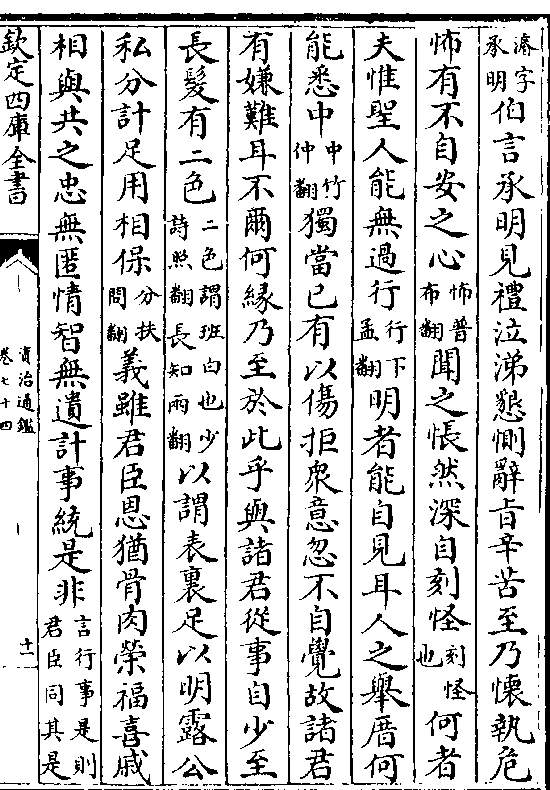 濬字承明伯言承明見禮泣涕懇惻辭旨辛苦至乃懷執危
怖有不自安之心怖普布翻聞之悵然深自刻怪刻怪也何者
夫惟聖人能無過行行下孟翻明者能自見耳人之舉厝何
能悉中中竹仲翻獨當己有以傷拒衆意忽不自覺故諸君
有嫌難耳不爾何緣乃至於此乎與諸君從事自少至
長髮有二色二色謂班白也少詩照翻長知兩翻以謂表裏足以明露公
私分計足用相保分扶問翻義雖君臣恩猶骨肉榮福喜戚
相與共之忠無匿情智無遺計事統是非言行事是則君臣同其是
欽定四庫全書
資治通鑑
卷七十四
十一